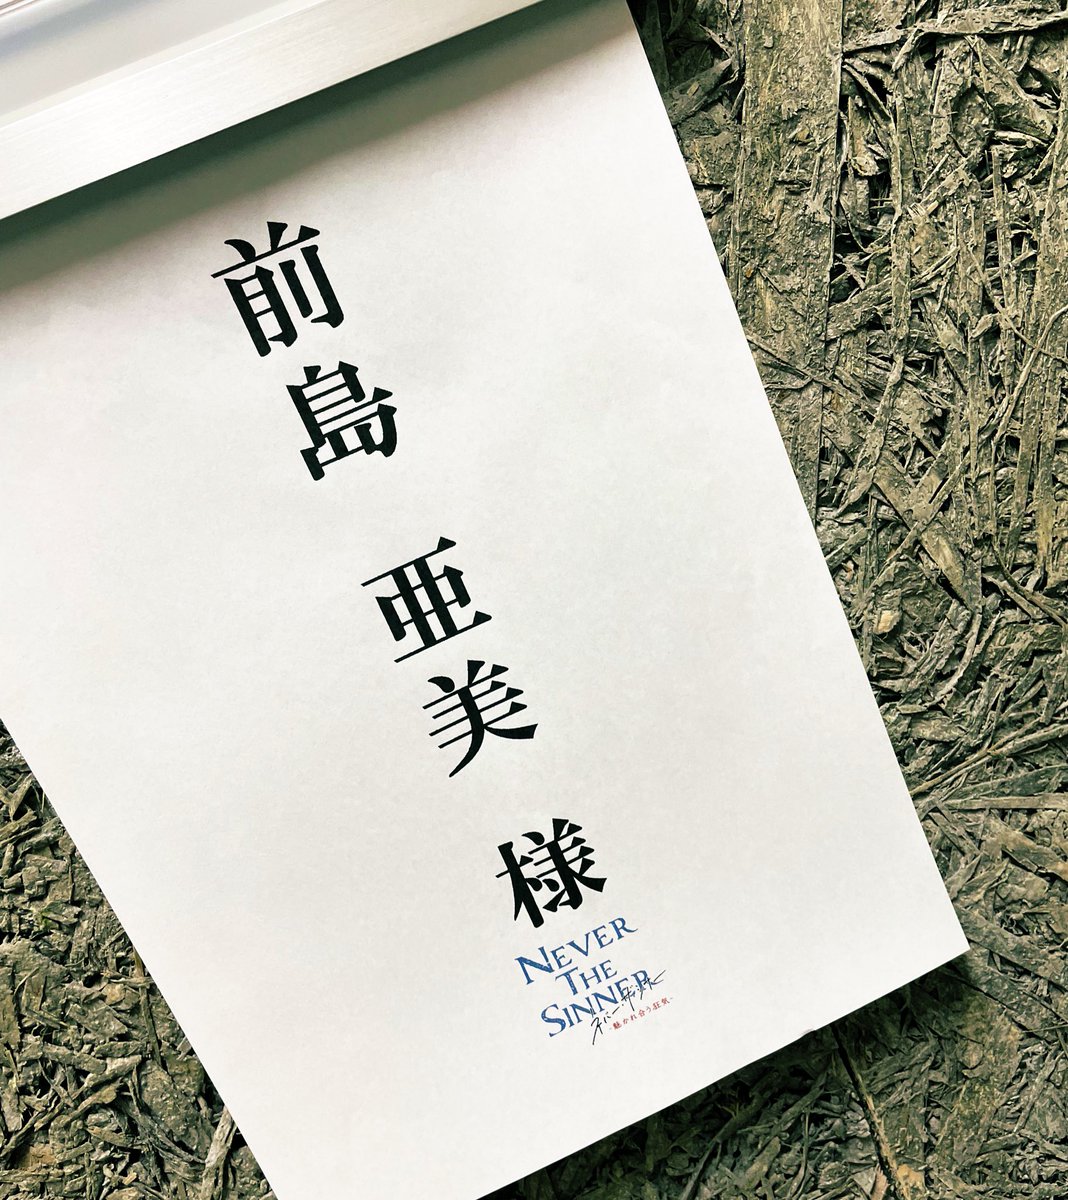 前島 亜美 様
NEVER
THE
SINNER
ネバー・ザ・シナー
-魅かれ合う狂気-